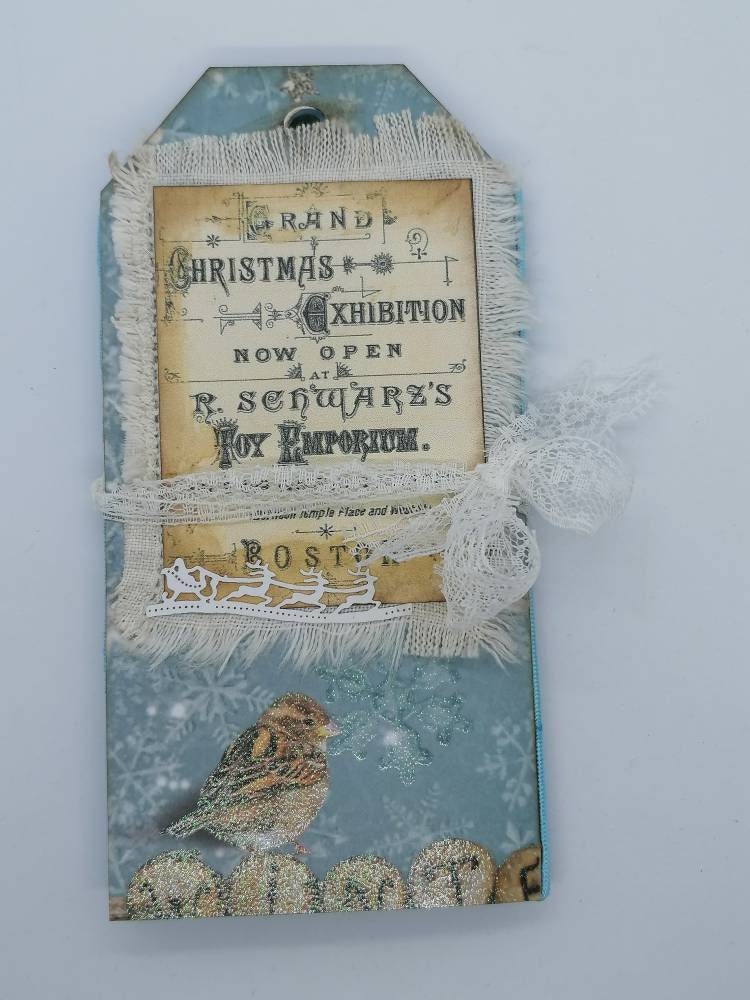 GRAND
CHRISTMAS
EXHIBITION
NOW OPEN
AT
R. SCHWARZ'S
TOY EMPORIUM.
Temple Place and
BOSTON
WINTE